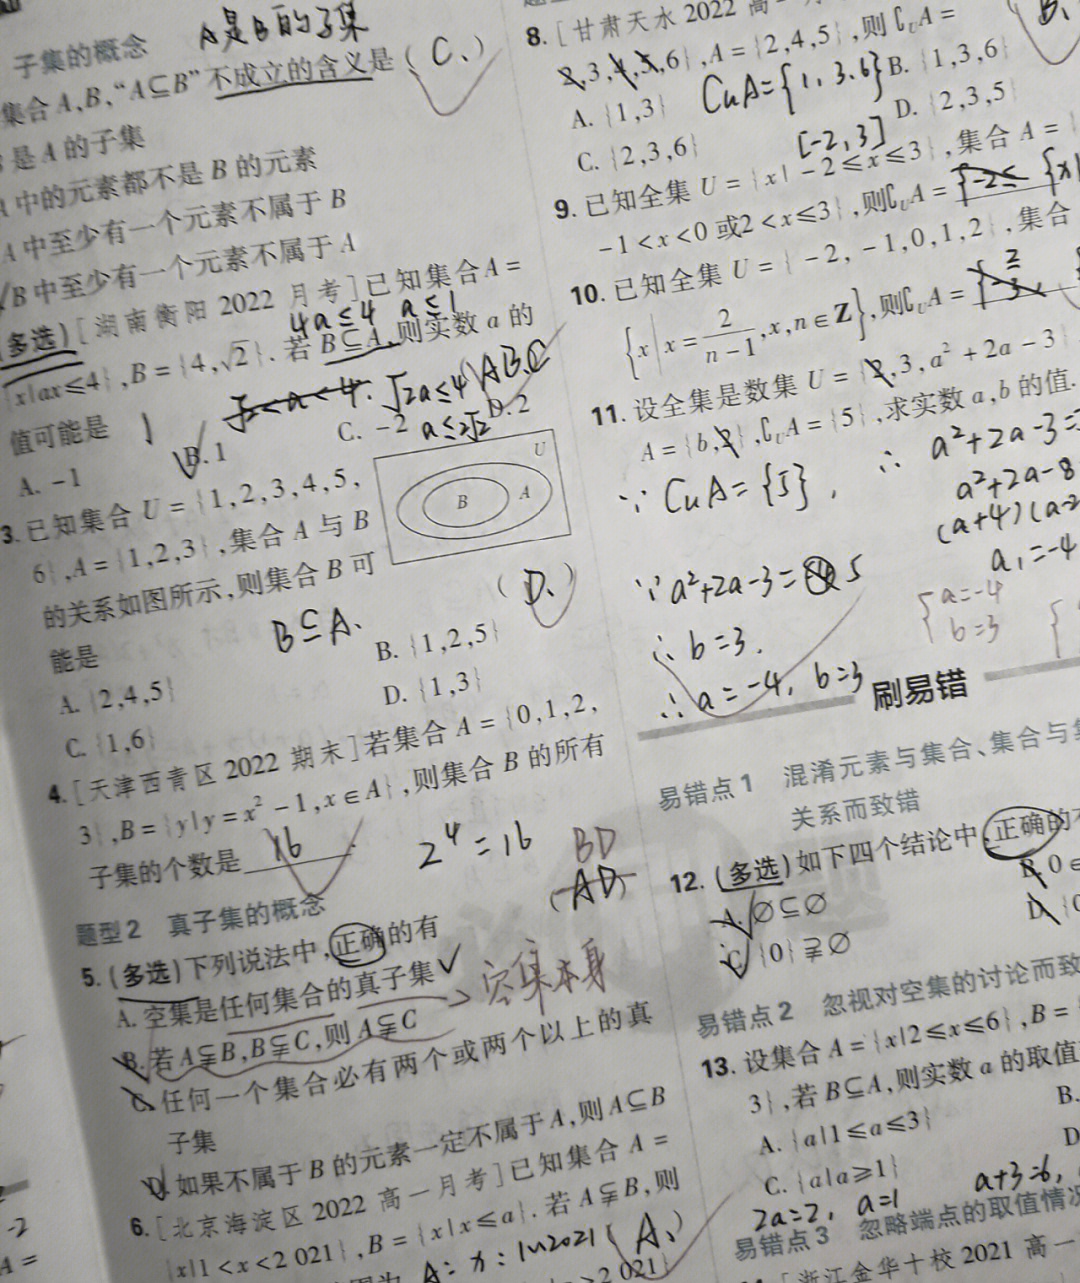 子集的概念
A是B的子集
集合A,B,“A⊆B”不成立的含义是(C.)
是A的子集
A中的元素都不是B的元素
A中至少有一个元素不属于B
B中至少有一个元素不属于A
(多选)[湖南衡阳2022月考]已知集合A=
4a≤4 a≤1
{x|ax≤4},B={4,√2}.若B⊆A,则实数a的
√2<a<4. √2a≤4 ABC
值可能是
A. -1
B. 1
C. -2
a≤2√2
D. 2
3. 已知集合U={1,2,3,4,5,
6},A={1,2,3},集合A与B
的关系如图所示,则集合B可
能是
(D.)
B⊆A.
U
B
A
A. {2,4,5}
B. {1,2,5}
C. {1,6}
D. {1,3}
4. [天津西青区2022期末]若集合A={0,1,2,
3},B={y|y=x²-1,x∈A},则集合B的所有
子集的个数是16
2⁴=16
BD
(AD)
题型2 真子集的概念
5. (多选)下列说法中,正确的有
A. 空集是任何集合的真子集
空集本身
B. 若A⫋B,B⫋C,则A⫋C
C. 任何一个集合必有两个或两个以上的真
子集
D. 如果不属于B的元素一定不属于A,则A⊆B
6. [北京海淀区2022高一月考]已知集合A=
{x|1<x<2 021},B={x|x≤a}.若A⫋B,则
(A.)
8. [甘肃天水2022高一
2,3,4,5,6},A={2,4,5},则∁UA=
B.
CuA={1,3.6}
A. {1,3}
B. {1,3,6}
C. {2,3,6}
D. {2,3,5}
[-2,3]
9. 已知全集U={x|-2≤x≤3},集合A={
-1<x<0或2<x≤3},则∁UA=
10. 已知全集U={-2,-1,0,1,2},集合
{x|x=2/(n-1),x,n∈Z},则∁UA=
11. 设全集是数集U={2,3,a²+2a-3}
A={b,2},∁UA={5},求实数a,b的值.
∵ CuA={5},
∴ a²+2a-3=
a²+2a-8
(a+4)(a-2
a₁=-4
∵ a²+2a-3=5
∴ b=3.
a=-4
b=3
∴ a=-4, b=3
刷易错
易错点1 混淆元素与集合、集合与集
关系而致错
12. (多选)如下四个结论中,正确的
A. ∅⊆∅
B. 0∈
C. {0}⫌∅
D. {0
易错点2 忽视对空集的讨论而致
13. 设集合A={x|2≤x≤6},B=
3},若B⊆A,则实数a的取值
A. {a|1≤a≤3}
B.
C. {a|a≥1}
D
2a=2, a=1
a+3=6,
易错点3 忽略端点的取值情况
[浙江金华十校2021高一